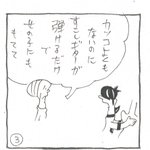 カッコよくも
ないのに
すごいギターが
弾けるだけ
で
女の子にも
もてて
③